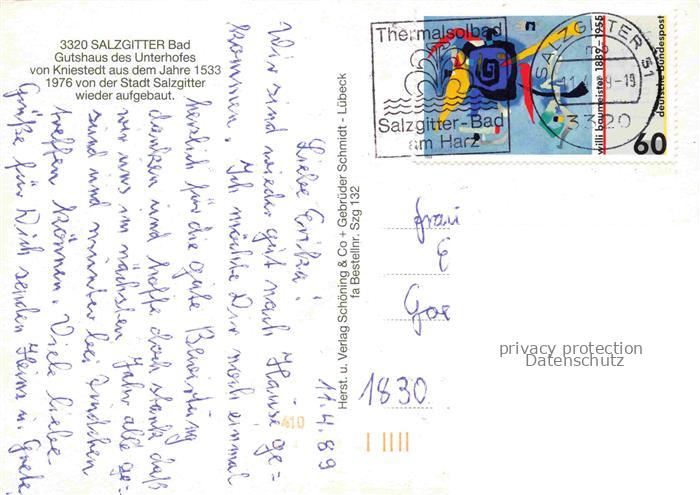 3320 SALZGITTER Bad
Gutshaus des Unterhofes
von Kniestedt aus dem Jahre 1533
1976 von der Stadt Salzgitter
wieder aufgebaut.
Thermalsolbad
Salzgitter-Bad
am Harz
SALZGITTER 51
-19
3320
willi baumeister 1889-1955
deutsche bundespost
60
Herst. u. Verlag Schöning & Co + Gebrüder Schmidt - Lübeck
fa Bestellnr. Szg 132
11.4.89
Liebe Erika!
Wir sind wieder gut nach Hause ge=
kommen. Ich möchte Dir noch einmal
herzlich für die gute Bewirtung
danken und hoffe doch stark daß
wir uns im nächsten Jahr alle ge-
sund und munter bei
treffen können. Viele liebe
Grüße für Dich senden Heinz u. Grete
Frau
E
Goe
1830
410
privacy protection
Datenschutz